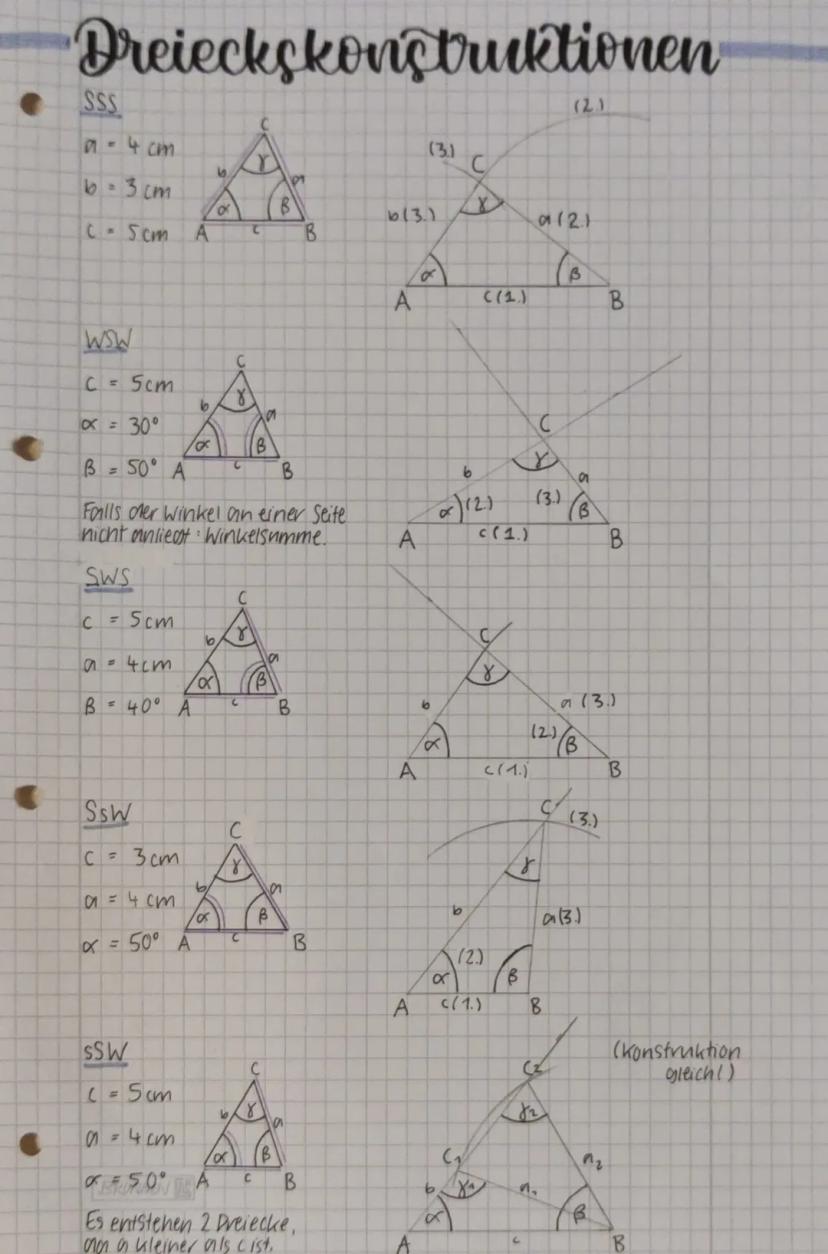 Dreieckskonstruktionen
SSS
a = 4 cm
b = 3 cm
c = 5 cm
C
γ
b
a
α
β
A
c
B
(2.)
(3.)
C
γ
b (3.)
a (2.)
α
β
A
c (1.)
B
WSW
c = 5 cm
α = 30°
β = 50°
C
γ
b
a
α
β
A
c
B
Falls der Winkel an einer Seite
nicht anliegt : Winkelsumme.
C
γ
b
a
α
(2.)
(3.)
β
A
c (1.)
B
SWS
c = 5 cm
a = 4 cm
β = 40°
C
γ
b
a
α
β
A
c
B
C
γ
b
a (3.)
α
(2.)
β
A
c (1.)
B
SsW
c = 3 cm
a = 4 cm
α = 50°
C
γ
b
a
α
β
A
c
B
C
(3.)
γ
b
a (3.)
(2.)
α
β
A
c (1.)
B
sSW
c = 5 cm
a = 4 cm
α = 50°
C
γ
b
a
α
β
A
c
B
Es entstehen 2 Dreiecke,
da a kleiner als c ist.
(Konstruktion
gleich!)
C2
γ2
C1
a2
b
γ1
a1
α
β
A
c
B